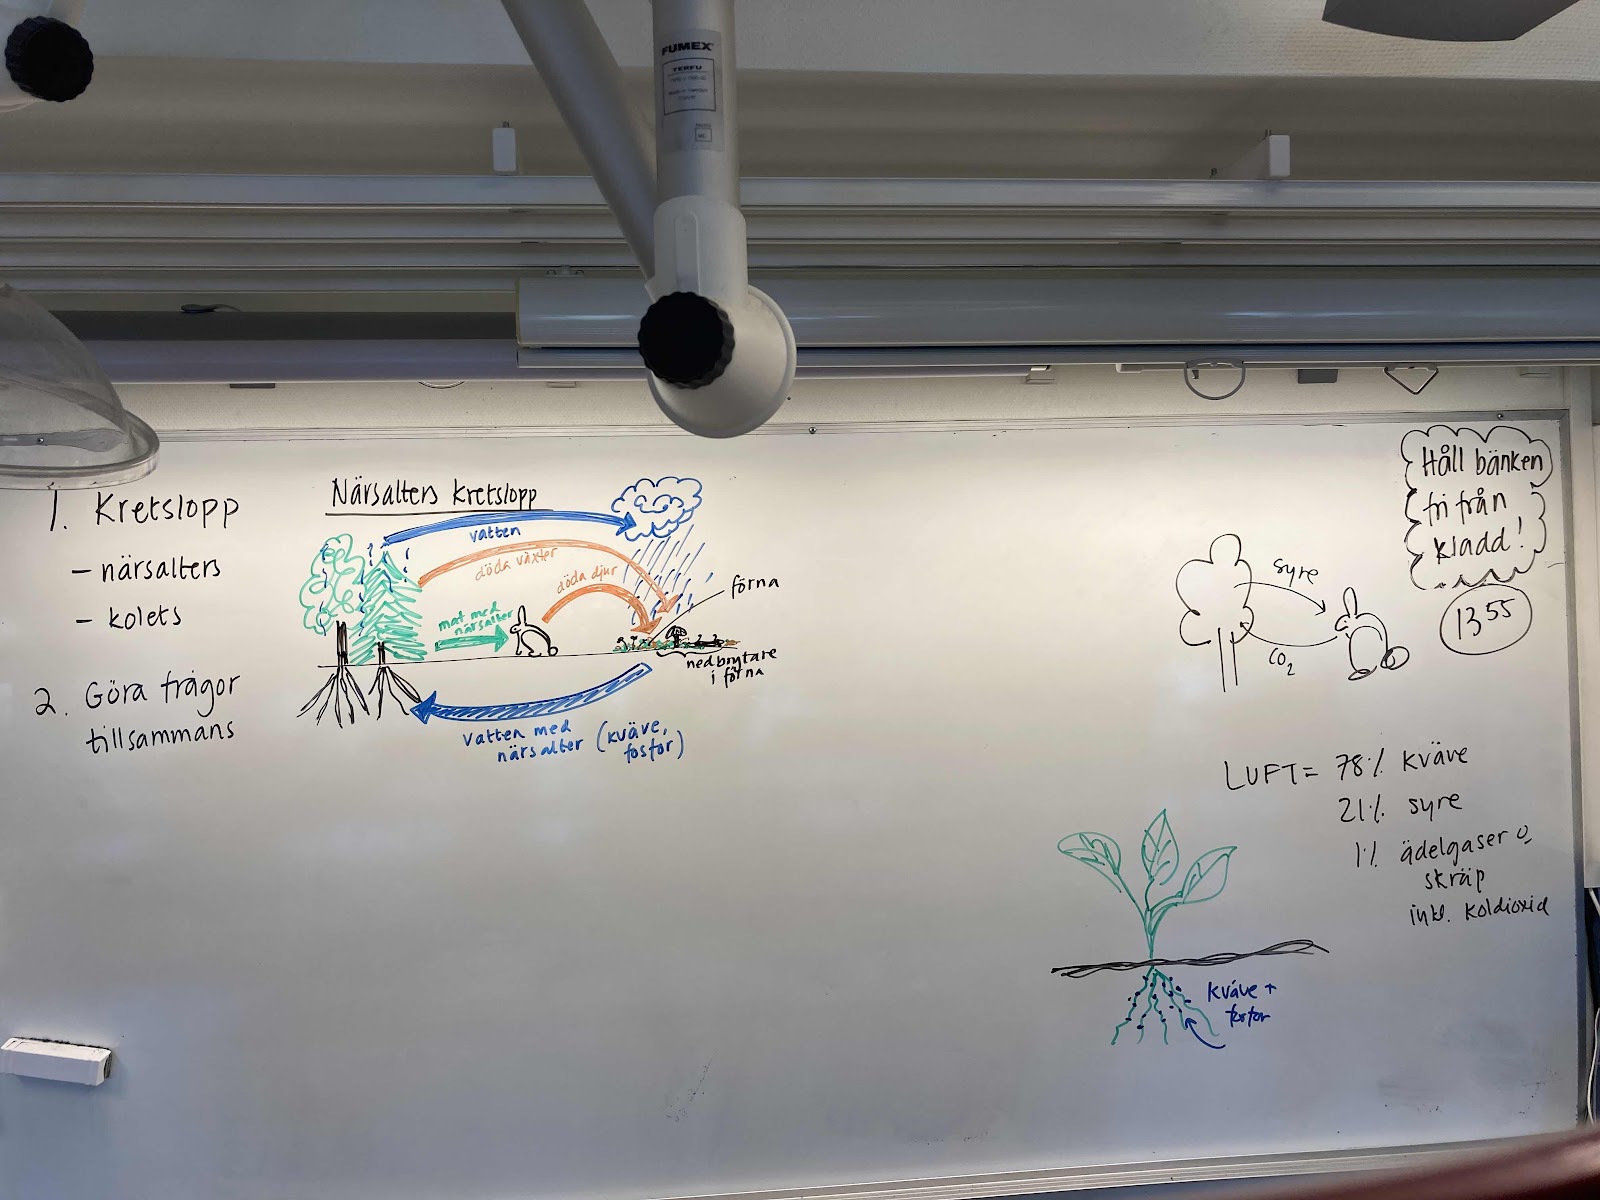 FUMEX
TERFU
1. Kretslopp
- närsalters
- kolets
2. Göra frågor
tillsammans
Närsalters kretslopp
vatten
döda växter
döda djur
mat med
närsalter
förna
nedbrytare
i förna
vatten med
närsalter (kväve,
fosfor)
Håll bänken
fri från
kladd!
13 55
syre
CO2
LUFT = 78% kväve
21% syre
1% ädelgaser o
skräp
inkl. koldioxid
kväve +
fosfor